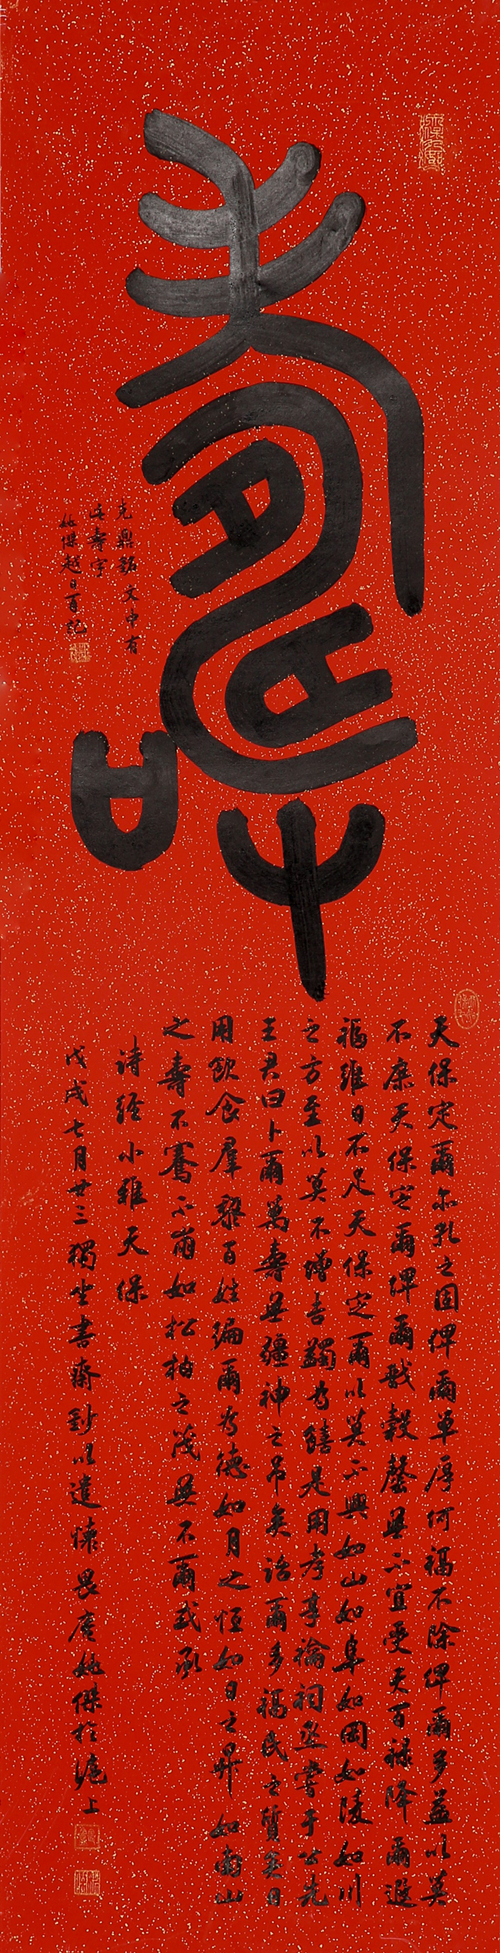 壽
克鼎銘文中有
此壽字
姚傑越日再記
天保定爾亦孔之固俾爾單厚何福不除俾爾多益以莫
不庶天保定爾俾爾戩穀罄無不宜受天百祿降爾遐
福維日不足天保定爾以莫不興如山如阜如岡如陵如川
之方至以莫不增吉蠲為饎是用孝享禴祠烝嘗于公先
王君曰卜爾萬壽無疆神之弔矣詒爾多福民之質矣日
用飲食羣黎百姓徧爾為德如月之恒如日之昇如南山
之壽不騫不崩如松柏之茂無不爾或承
詩經小雅天保
戊戌七月廿三獨坐書齋鈔以遣懷畏姚傑於滬上